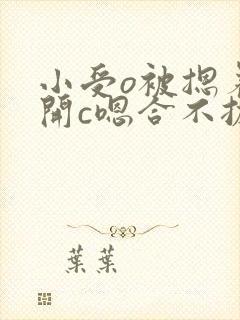 小受o被摁着
開c嗯合不拢
葉葉